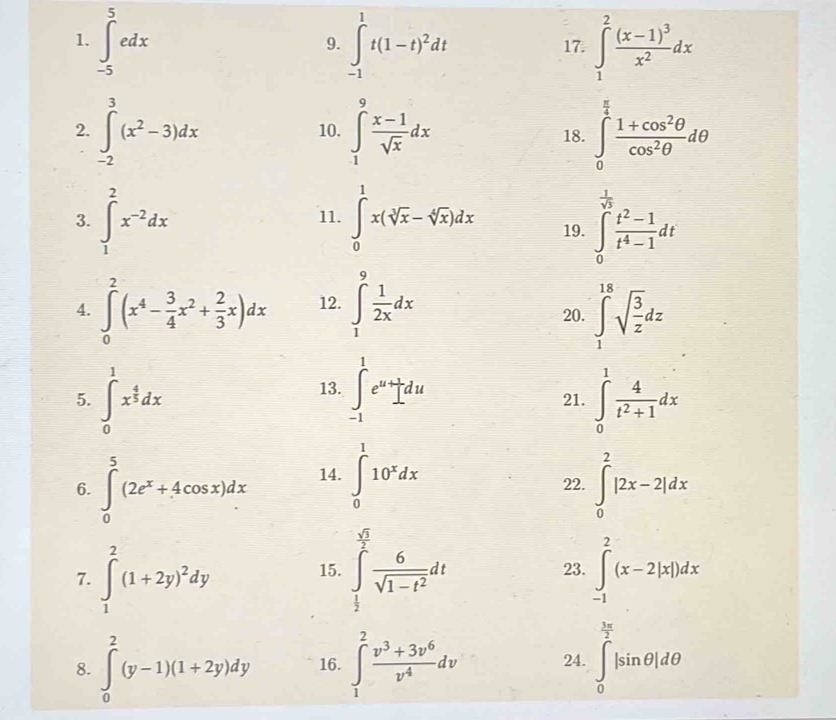 1. \int_{-5}^{5} edx
2. \int_{-2}^{3} (x^2 - 3)dx
3. \int_{1}^{2} x^{-2}dx
4. \int_{0}^{2} \left(x^4 - \frac{3}{4}x^2 + \frac{2}{3}x\right)dx
5. \int_{0}^{1} x^{\frac{4}{5}}dx
6. \int_{0}^{5} (2e^x + 4\cos x)dx
7. \int_{1}^{2} (1 + 2y)^2dy
8. \int_{0}^{2} (y - 1)(1 + 2y)dy
9. \int_{-1}^{1} t(1 - t)^2dt
10. \int_{1}^{9} \frac{x - 1}{\sqrt{x}}dx
11. \int_{0}^{1} x(\sqrt[3]{x} - \sqrt[4]{x})dx
12. \int_{1}^{9} \frac{1}{2x}dx
13. \int_{-1}^{1} e^{u+1}du
14. \int_{0}^{1} 10^xdx
15. \int_{\frac{1}{2}}^{\frac{\sqrt{3}}{2}} \frac{6}{\sqrt{1 - t^2}}dt
16. \int_{1}^{2} \frac{v^3 + 3v^6}{v^4}dv
17. \int_{1}^{2} \frac{(x - 1)^3}{x^2}dx
18. \int_{0}^{\frac{\pi}{4}} \frac{1 + \cos^2\theta}{\cos^2\theta}d\theta
19. \int_{0}^{\frac{1}{\sqrt{3}}} \frac{t^2 - 1}{t^4 - 1}dt
20. \int_{1}^{18} \sqrt{\frac{3}{z}}dz
21. \int_{0}^{1} \frac{4}{t^2 + 1}dx
22. \int_{0}^{2} |2x - 2|dx
23. \int_{-1}^{2} (x - 2|x|)dx
24. \int_{0}^{\frac{3\pi}{2}} |\sin\theta|d\theta